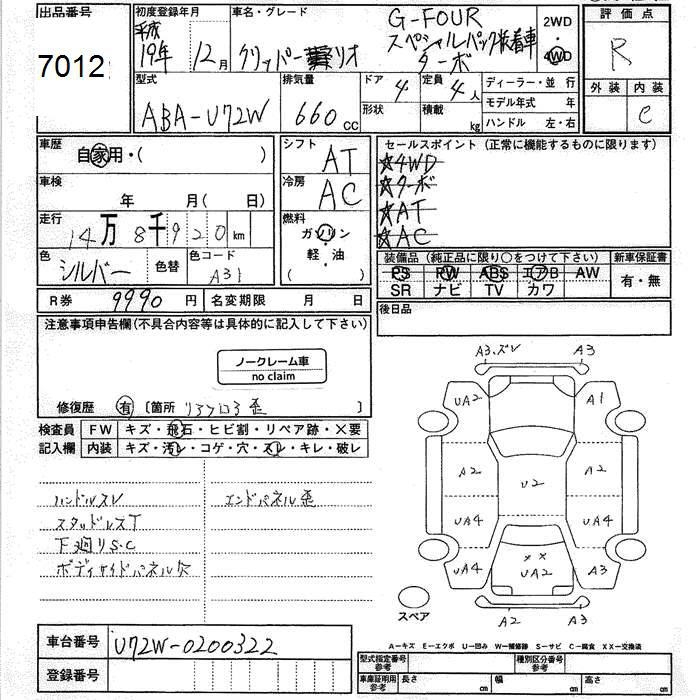 出品番号 初度登録年月 車名・グレード 評価点
7012 平成19年 12月 クリッパーリオ G-FOUR スペシャルパック装着車 ターボ 2WD 4WD R
型式 排気量 ドア 定員 ディーラー・並行 外装 内装
ABA-U72W 660cc 4 4人 モデル年式 年 C
形状 積載 kg ハンドル 左・右
車歴 自家用・( ) シフト AT セールスポイント (正常に機能するものに限ります)
☆4WD
車検 年 月( 日) 冷房 AC ☆ターボ
☆AT
走行 14万8千920km 燃料 ガソリン ☆AC
軽・油
( )
色 シルバー 色替 色コード A31 装備品 (純正品に限り○をつけて下さい) 新車保証書
PS PW ABS エアB AW 有・無
SR ナビ TV カワ
R券 9990円 名変期限 月 日 後日品
注意事項申告欄(不具合内容等は具体的に記入して下さい)
ノークレーム車
no claim
修復歴 有 〔箇所 リアフロア歪 〕
検査員 FW キズ・飛石・ヒビ割・リペア跡・×要
記入欄 内装 キズ・汚レ・コゲ・穴・スレ・キレ・破レ
ハンドルスレ エンドパネル歪
スタッドレスT
下廻りS.C
ボディサイドパネル穴
A3.ズレ A3
UA2 A1
A2 U2 A2
UA4 UA4
UA4 ×× UA2 A3
スペア A2 A3
車台番号 U72W-0200322
登録番号
A－キズ E－エクボ U－凹み W－補修跡 S－サビ C－腐食 XX－交換済
型式指定番号 参考 種別区分番号 参考
車庫証明用 参考 長さ cm 幅 cm 高さ cm